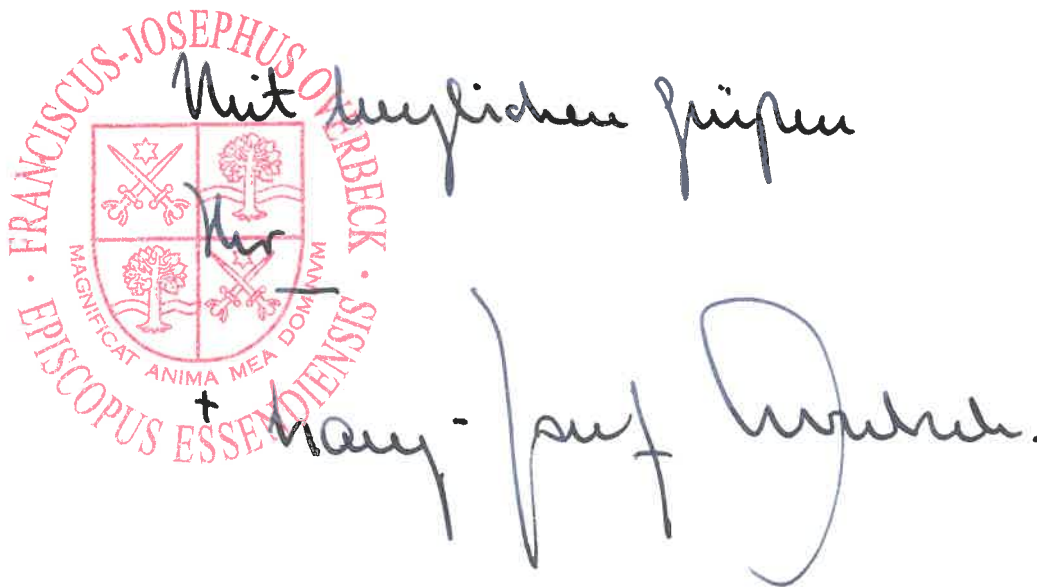 FRANCISCUS-JOSEPHUS OVERBECK · EPISCOPUS ESSENDIENSIS ·
MAGNIFICAT ANIMA MEA DOMINVM
Mit herzlichen Grüßen
Ihr
+ Franz-Josef Overbeck.